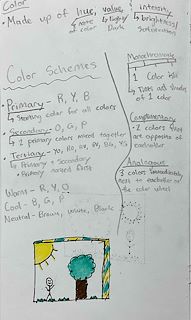 Color
- Made up of hue, value, intensity
name of color
light/Dark
brightness/
Color Schemes
- Primary - R, Y, B
↳ Starting color for all colors
- Secondary - O, G, P
↳ 2 primary colors mixed together
- Tertiary - YO, RO, RV, BV, BG, YG
↳ Primary + Secondary
• Primary named first
Warm - R, Y, O
Cool - B, G, P
Neutral - Brown, White, Black
Monochromatic
1 Color
Tints and Shades
of 1 color
Complimentary
- 2 colors that
are opposite of
each other
Analogous
3 colors immediately
next to each other on
the color wheel